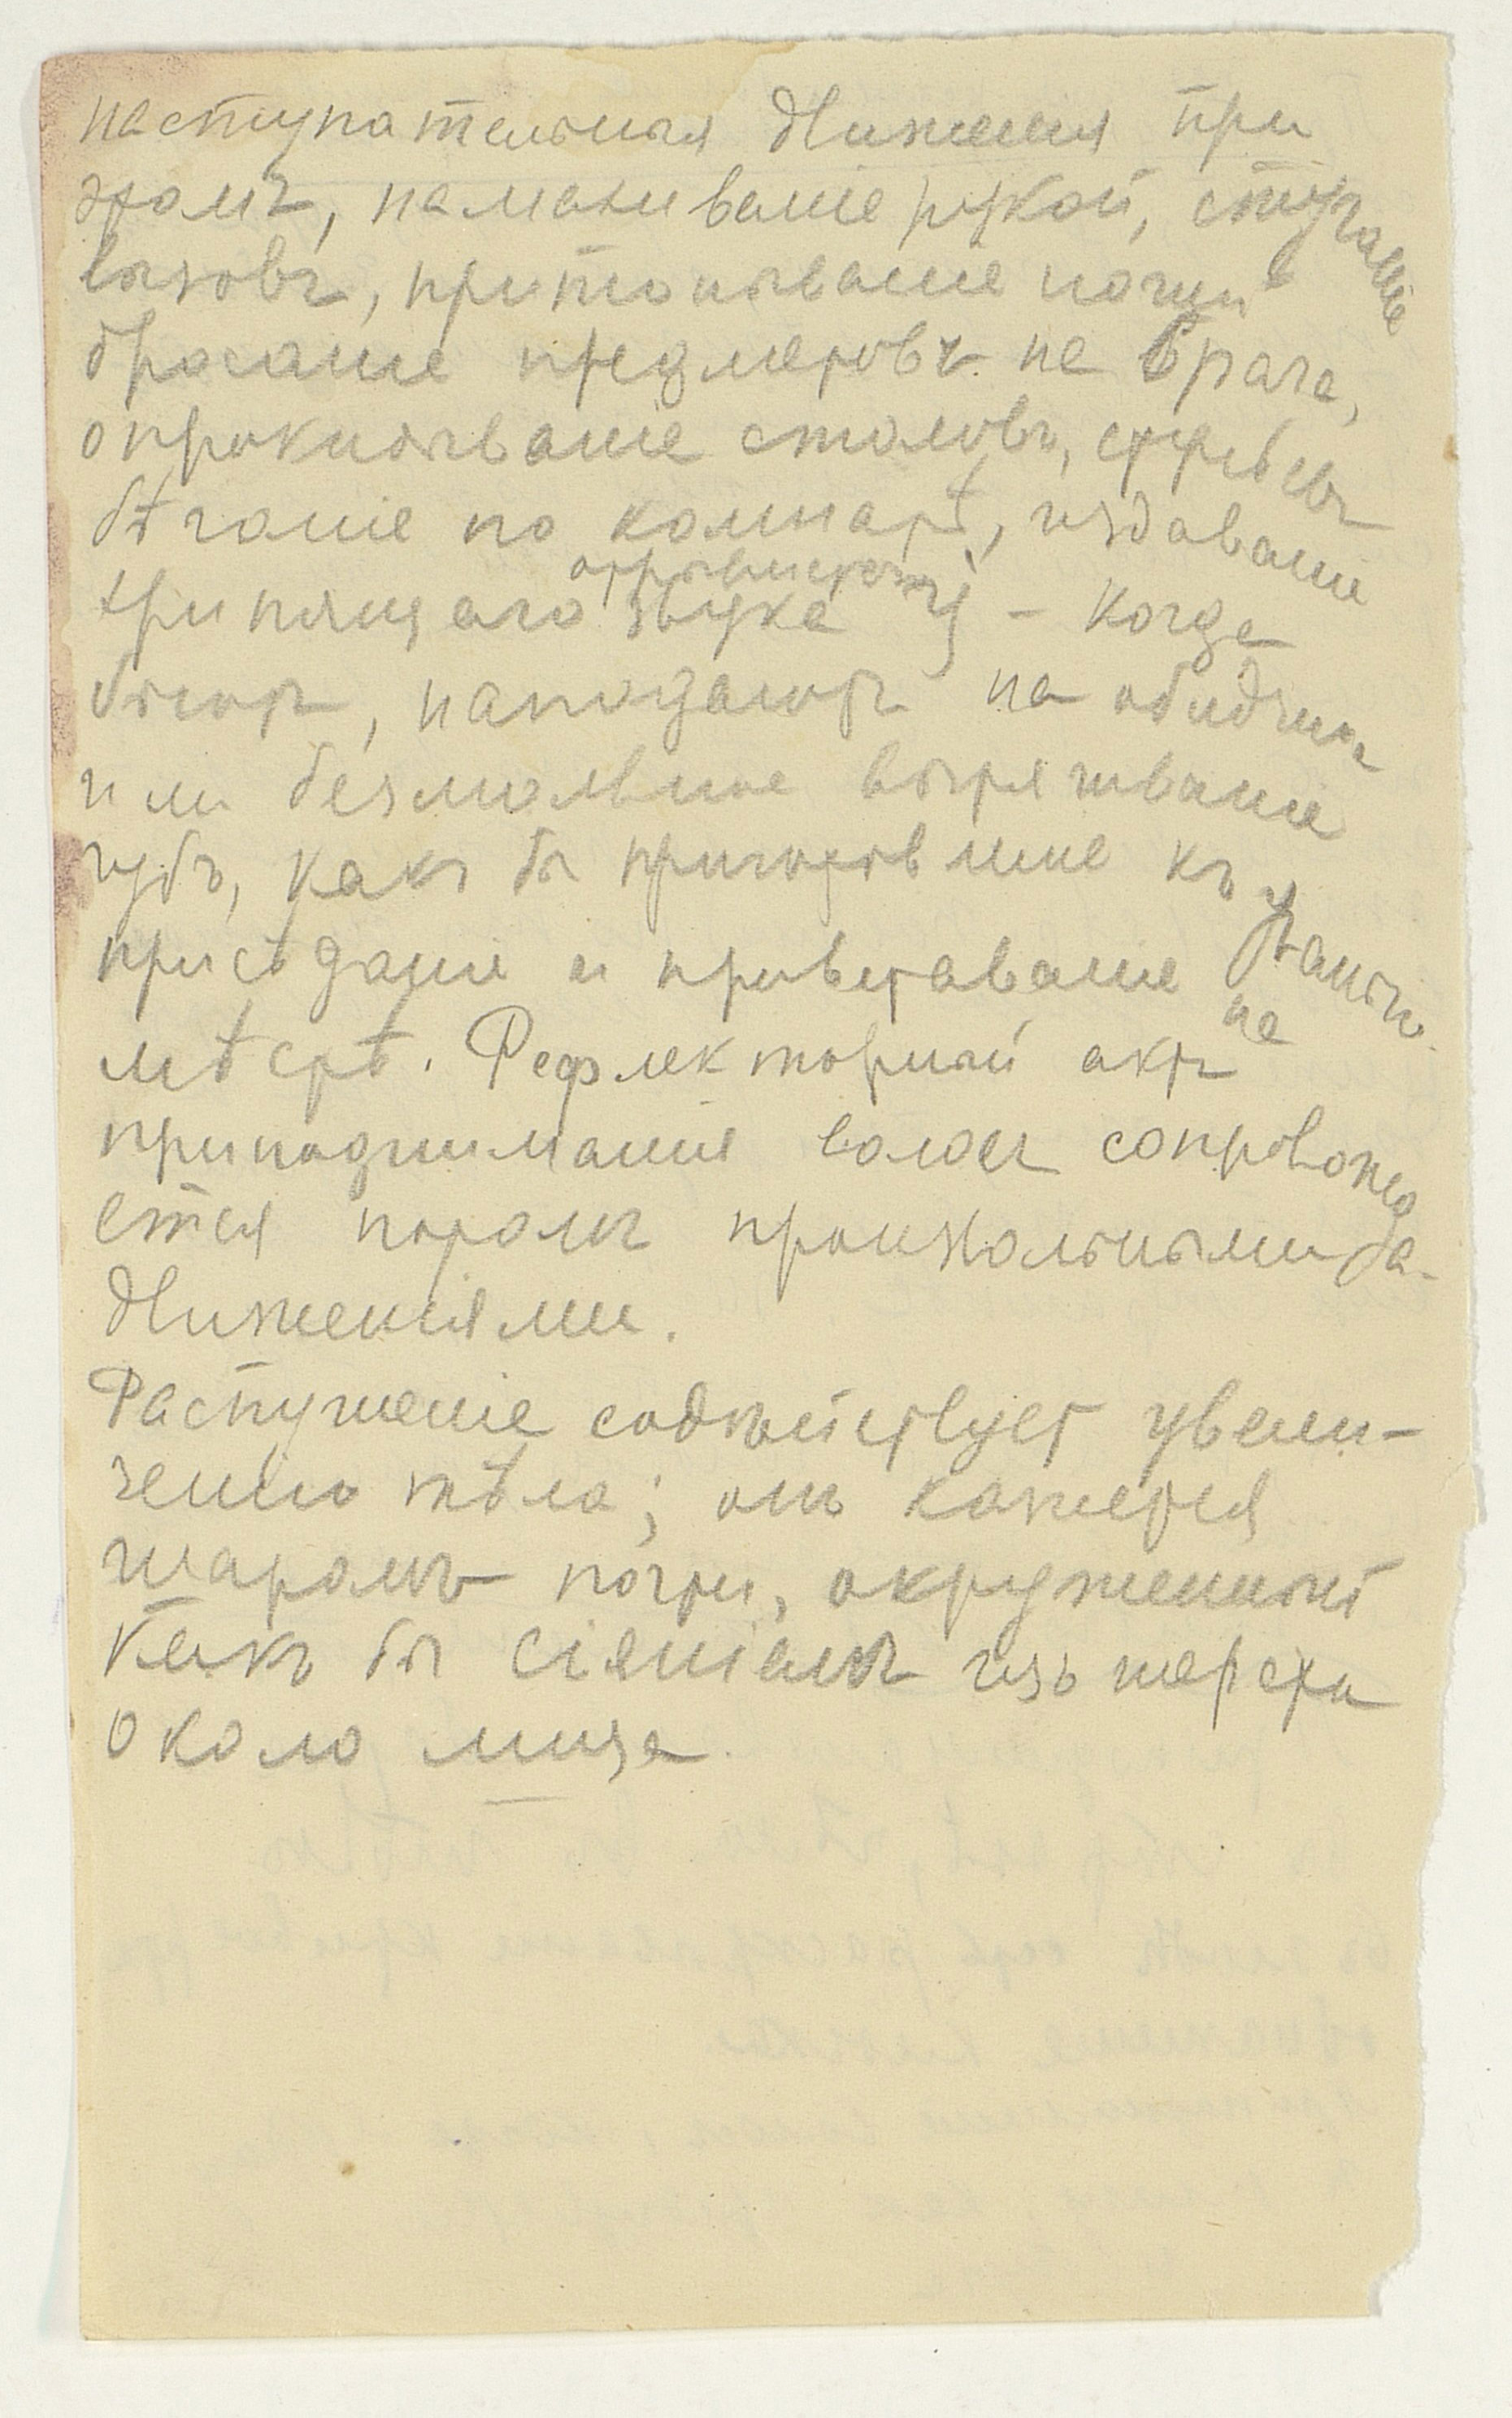 наступательныя движенія при
этомъ, намахиваніе рукой, стуканіе
вызовъ, притопываніе ногой
бросаніе предметовъ на врага,
опрокидываніе столовъ, стульевъ
бѣганіе по комнатѣ, издаваніе
отрывисто
хрипящаго звука – когда
бьютъ, нападаютъ на обидчика
или безмолвное вытягиваніе
губъ, какъ бы приготовленіе къ
присѣданіе и привставаніе на
мѣстѣ. Рефлекторный актъ
приподниманія волосъ сопровожда-
ется потомъ произвольными
движеніями.
Распушеніе содѣйствует увели-
ченію тѣла; онъ кажется
шаромъ почти, окруженный
какъ бы сіяніемъ изъ шерсти
около лица.